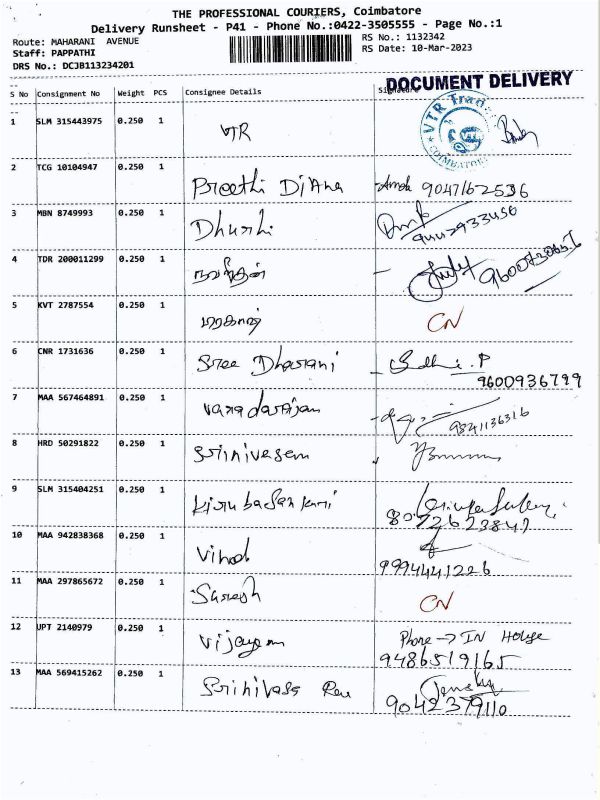 THE PROFESSIONAL COURIERS, Coimbatore
Delivery Runsheet - P41 - Phone No.:0422-3505555 - Page No.:1
Route: MAHARANI AVENUE
Staff: PAPPATHI
DRS No.: DCJB113234201
RS No.: 1132342
RS Date: 10-Mar-2023
DOCUMENT DELIVERY
S No Consignment No Weight PCS Consignee Details Signature
VTR Trad
COIMBATORE
1 SLM 315443975 0.250 1 VTR
2 TCG 10104947 0.250 1 Preethi Diana 9047162536
3 MBN 8749993 0.250 1 Dhurshi 9442933456
4 TDR 200011299 0.250 1 நவீந்தன்
5 KVT 2787554 0.250 1 CN
6 CNR 1731636 0.250 1 Sree Dharani 9600936799
7 MAA 567464891 0.250 1 Varadarajan 9841136316
8 HRD 50291822 0.250 1 Srinivasan
9 SLM 315404251 0.250 1 8072623847
10 MAA 942838368 0.250 1 Vinod 9994441226
11 MAA 297865672 0.250 1 Suresh CN
12 UPT 2140979 0.250 1 Vijayan Phone → IN House
9486519165
13 MAA 569415262 0.250 1 Srinivasa Rau 9042379110